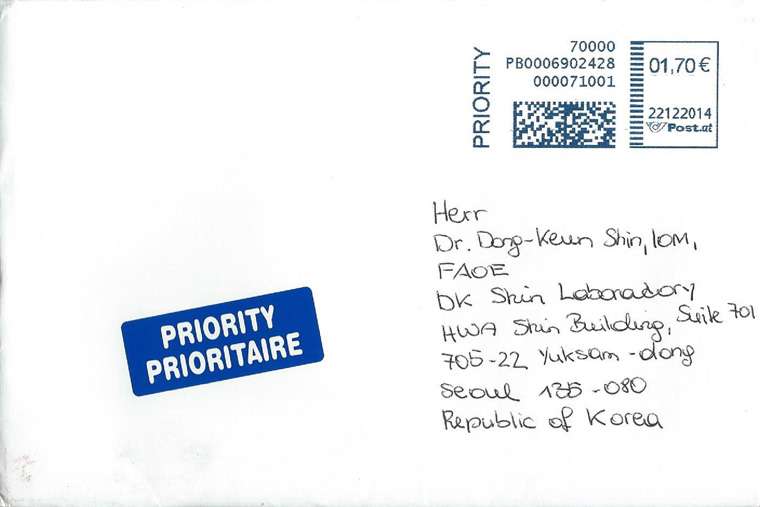 PRIORITY
70000
PB0006902428
000071001
01,70 €
22122014
Post.at
Herr
Dr. Dong-Keun Shin, IOM,
FAOE
DK Shin Laboradory
HWA Shin Building, Suite 701
705-22 Yuksam-dong
Seoul 135-080
Republic of Korea
PRIORITY
PRIORITAIRE